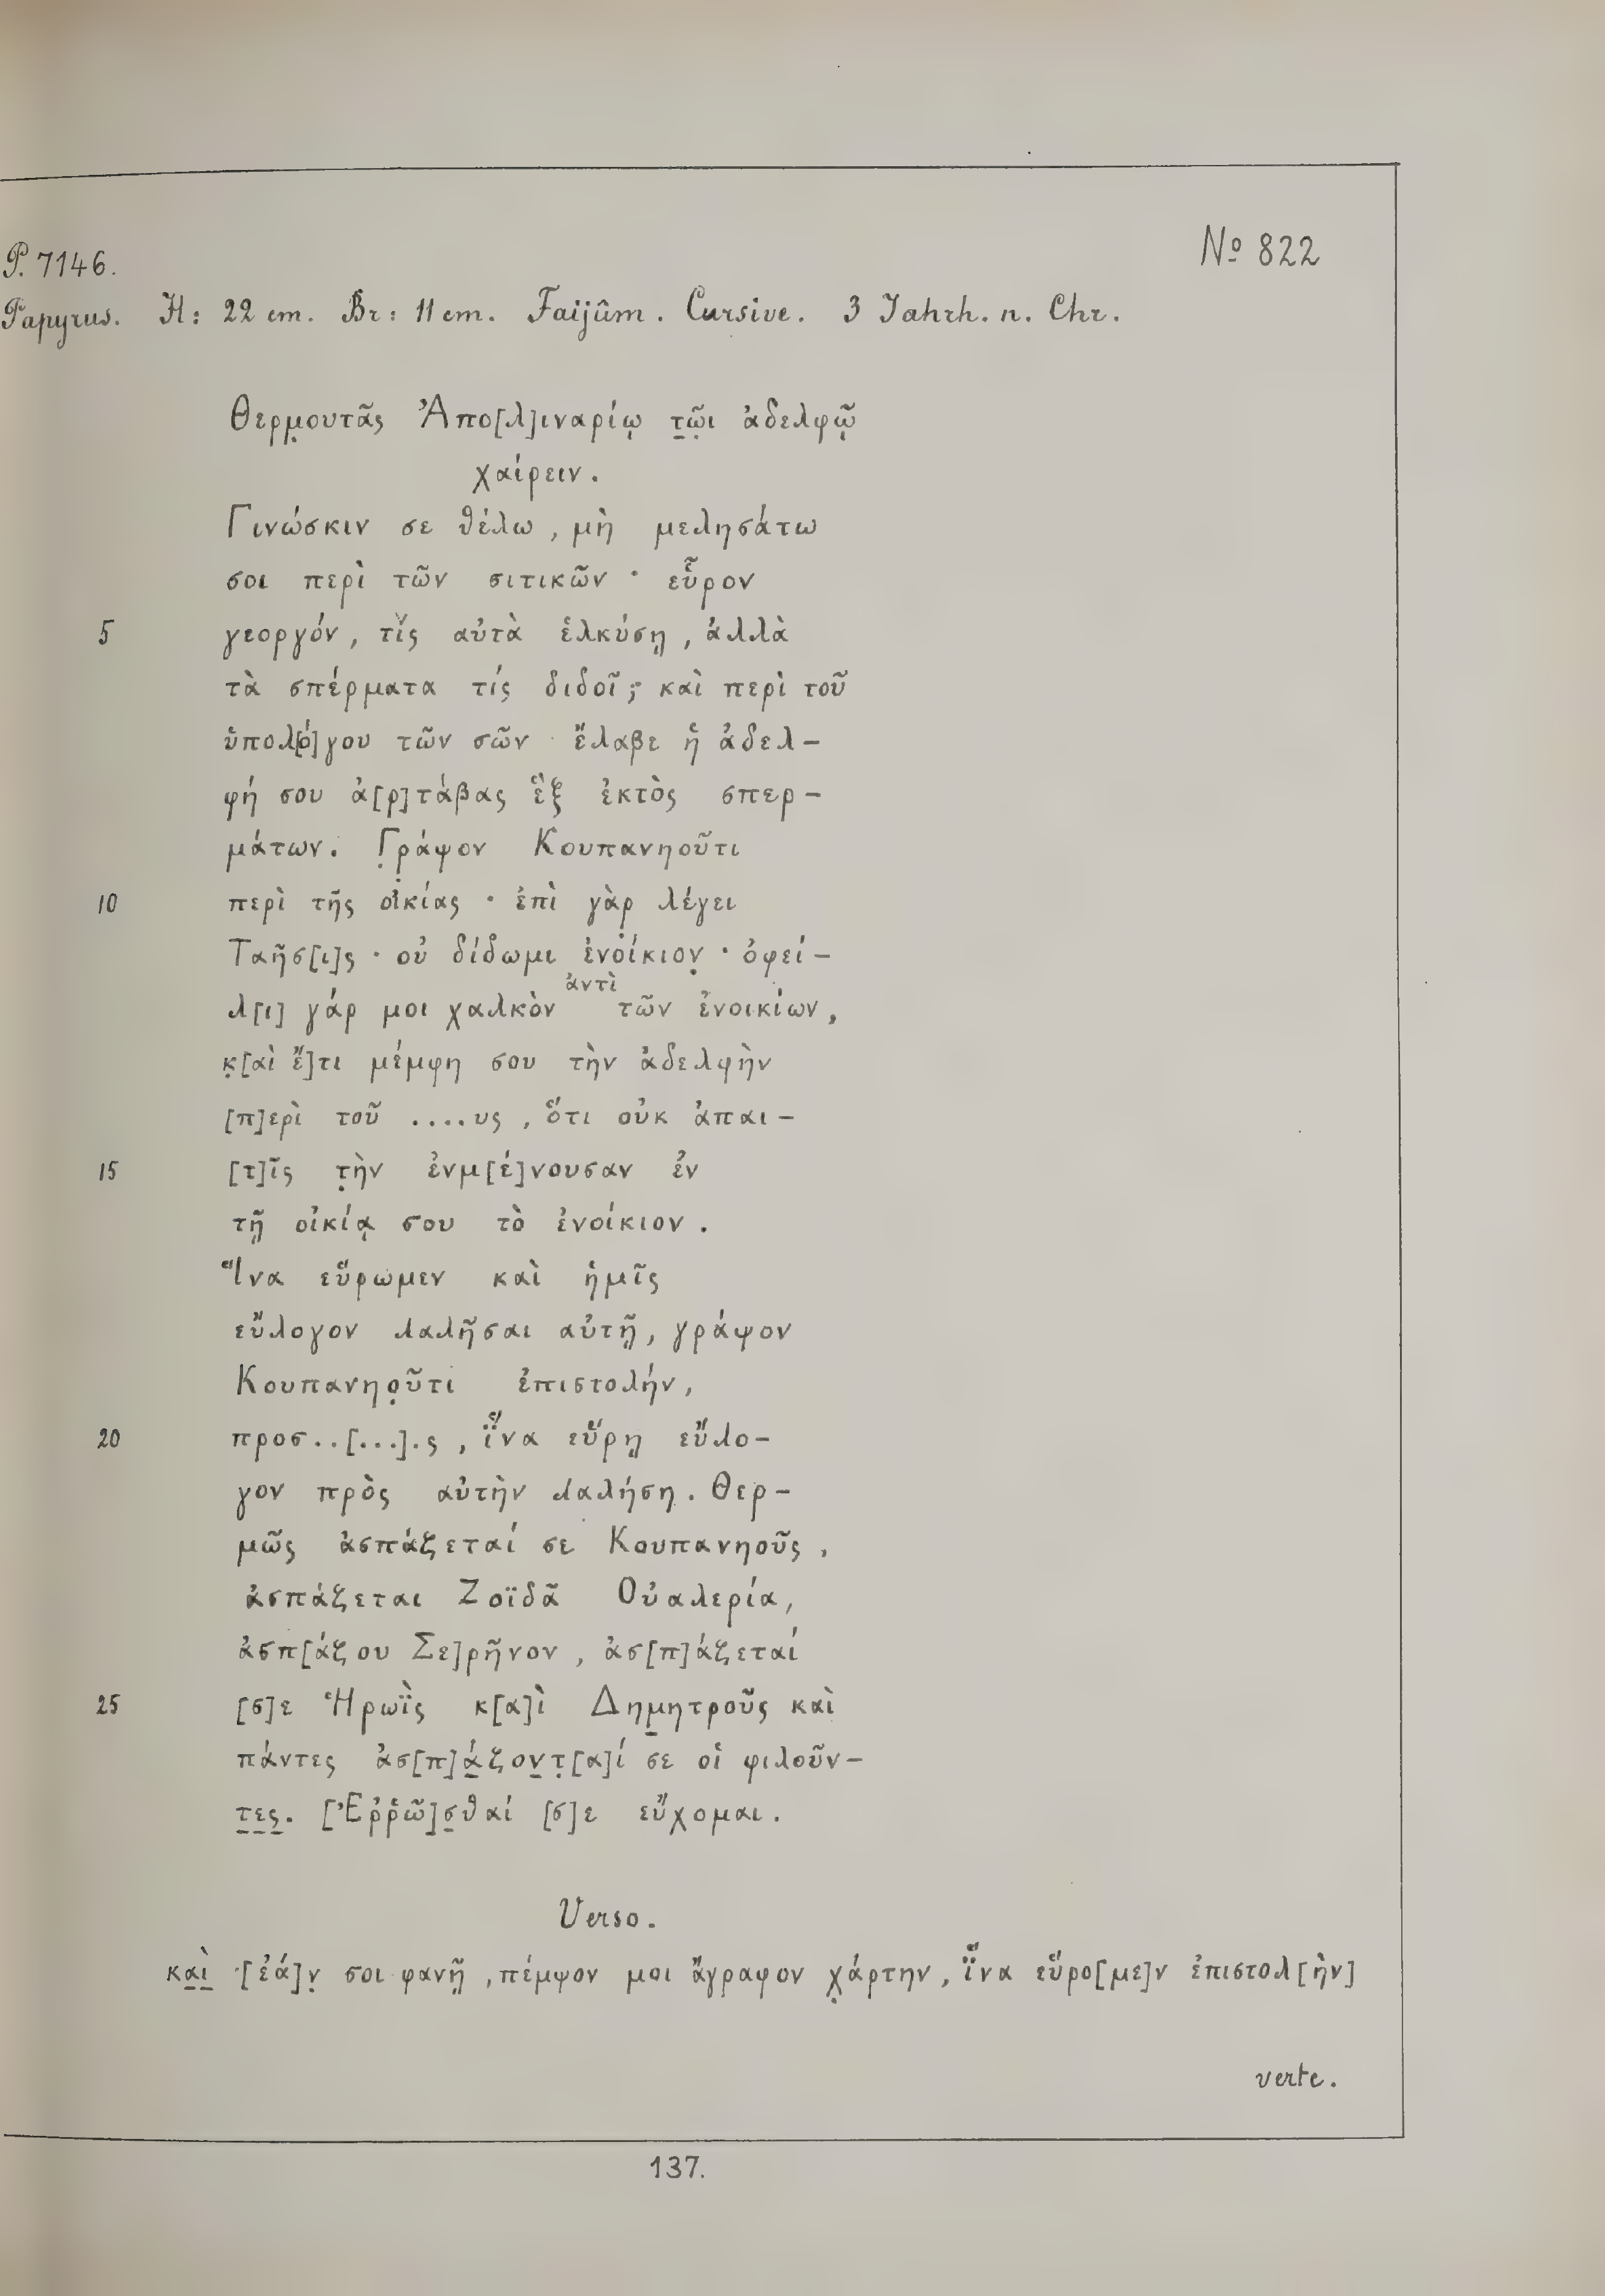 P. 7146.
Nº 822
Papyrus. H: 22 cm. Br: 11 cm. Faijûm. Cursive. 3 Jahrh. n. Chr.
Θερμ̣ουτᾶς Ἀπο[λ]ιναρίῳ τ̣ῶ̣ι ἀδελφῷ
χαίρειν.
Γινώσκιν σε θέλω, μὴ μελησάτω
σοι περὶ τῶν σιτικῶν · εὗρον
5 γεοργόν, τίς αὐτὰ ἑλκύσῃ, ἀλλὰ
τὰ σπέρματα τίς διδοῖ; καὶ περὶ τοῦ
ὑπολ[ό]γου τῶν σῶν ἔλαβε ἡ ἀδελ-
φή σου ἀ[ρ]τάβας ἓξ ἐκτὸς σπερ-
μάτων. Γ̣ρ̣άψον Κουπανηοῦτι
10 περὶ τῆς οἰκίας · ἐπὶ γὰρ λέγει
Ταῆσ[ι]ς · οὐ δίδωμι ἐνοίκιον̣ · ὀφεί-
λ[ι] γάρ μοι χαλκὸν ἀντὶ τῶν ἐνοικίων,
κ̣[αὶ ἔ]τι μέμφη σου τὴν ἀδελφὴν
[π]ερὶ τοῦ ....υς, ὅτι οὐκ ἀπαι-
15 [τ]ῖς τ̣ὴν ἐνμ[έ]νουσαν ἐν
τῇ οἰκίᾳ σου τὸ ἐνοίκιον.
Ἵνα εὕρωμεν καὶ ἡμῖς
εὔλογον λαλῆσαι αὐτῇ, γράψον
Κουπανηο̣ῦτι ἐπιστολήν,
20 προσ..[...].ς, ἵ̈να εὕρῃ εὔλο-
γον πρὸς αὐτὴν λαλήση. Θερ-
μῶς ἀσπάζεταί σε Κουπανηοῦς,
ἀσπάζεται Ζοϊδᾶ Οὐαλερία,
ἀσπ[άζου Σε]ρῆνον, ἀσ[π]άζεταί
25 [σ]ε Ἡρωῒς κ[α]ὶ Δημ̣ητροῦς καὶ
πάντες ἀσ[π]ά̣ζον̣τ̣[α]ί σε οἱ φιλοῦν-
τ̣ε̣ς̣. [Ἐῤῥῶ]σ̣θαί [σ]ε εὔχομαι.
Verso.
κα̣ὶ̣ [ἐά]ν̣ σοι φανῇ, πέμψον μοι ἄγραφον χ̣άρτην, ἵ̈να εὕρο[με]ν ἐπιστολ[ὴν]
verte.
137.